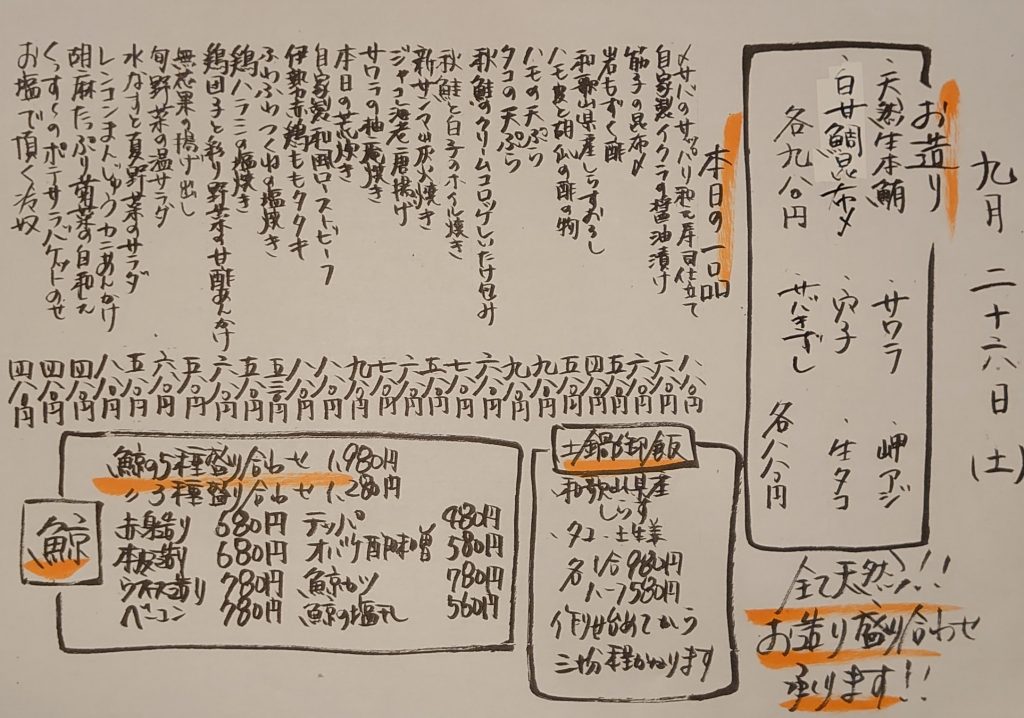 九月 二十六日(土)
お造り
・天然生本鮪
・白甘鯛昆布〆
各九八〇円
・サワラ
・穴子
・サバきずし
・岬アジ
・生タコ
各八八〇円
全て天然!!
お造り盛り合わせ
承ります!!
本日の一品
〆サバのサッパリ和え寿司仕立て 八八〇円
自家製イクラの醤油漬け 六八〇円
筋子の昆布〆 六八〇円
岩もずく酢 五八〇円
和歌山県産しらすおろし 四八〇円
ハモ皮と胡瓜の酢の物 五八〇円
ハモの天ぷら 九八〇円
タコの天ぷら 九八〇円
秋鮭のクリームコロッケしいたけ包み 六八〇円
秋鮭と白子のホイル焼き 七八〇円
新サンマ灰火焼き 五八〇円
ジャコ海老唐揚げ 六八〇円
サワラの柚庵焼き 七八〇円
本日の荒炊き 九八〇円
自家製和風ローストビーフ 八八〇円
伊勢赤鶏ももタタキ 八八〇円
ふわふわつくねの塩焼き 五三〇円
鶏ハラミの塩焼き 五八〇円
鶏団子と彩り野菜の甘酢あんかけ 六八〇円
無花果の揚げ出し 五八〇円
旬野菜の温サラダ 六八〇円
水なすと夏野菜のサラダ 五八〇円
レンコンまんじゅうカニあんかけ 八八〇円
胡麻たっぷり菊菜の白和え 四八〇円
くっすーのポテサラバケットのせ 四八〇円
お塩で頂く冷奴 四八〇円
土鍋御飯
・和歌山県産しらす
・タコ・土生姜
各1合980円
ハーフ580円
作り始めてから
三拾分程かかります
鯨
鯨の5種盛り合わせ 1,980円
〃3種盛り合わせ 1,280円
赤身造り 680円
本皮造り 680円
ウネス造り 780円
ベーコン 780円
テッパ 480円
オバケ酢味噌 580円
鯨カツ 780円
鯨の塩タレ 560円